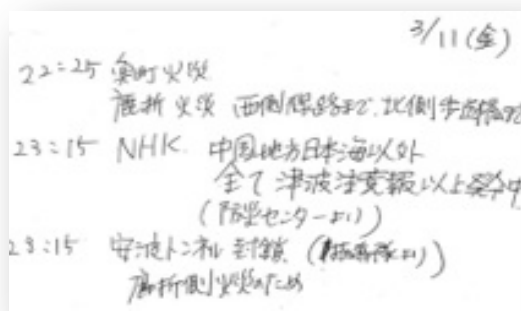 3/11(金)
22:25 魚町火災
鹿折火災 西側線路まで、北側
23:15 NHK. 中国地方日本海以外
全て津波注意報以上発令中
(防災センターより)
23:15 安波トンネル封鎖
鹿折側火災のため